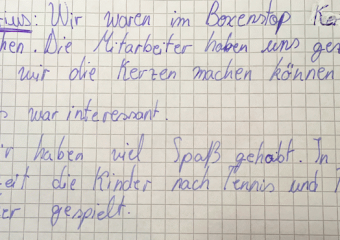 ius: Wir waren im Boxenstop Ker
hen. Die Mitarbeiter haben uns gez
wir die Kerzen machen können
s war interessant.
ir haben viel Spaß gehabt. In
eit die Kinder nach Tennis und
er gespielt.